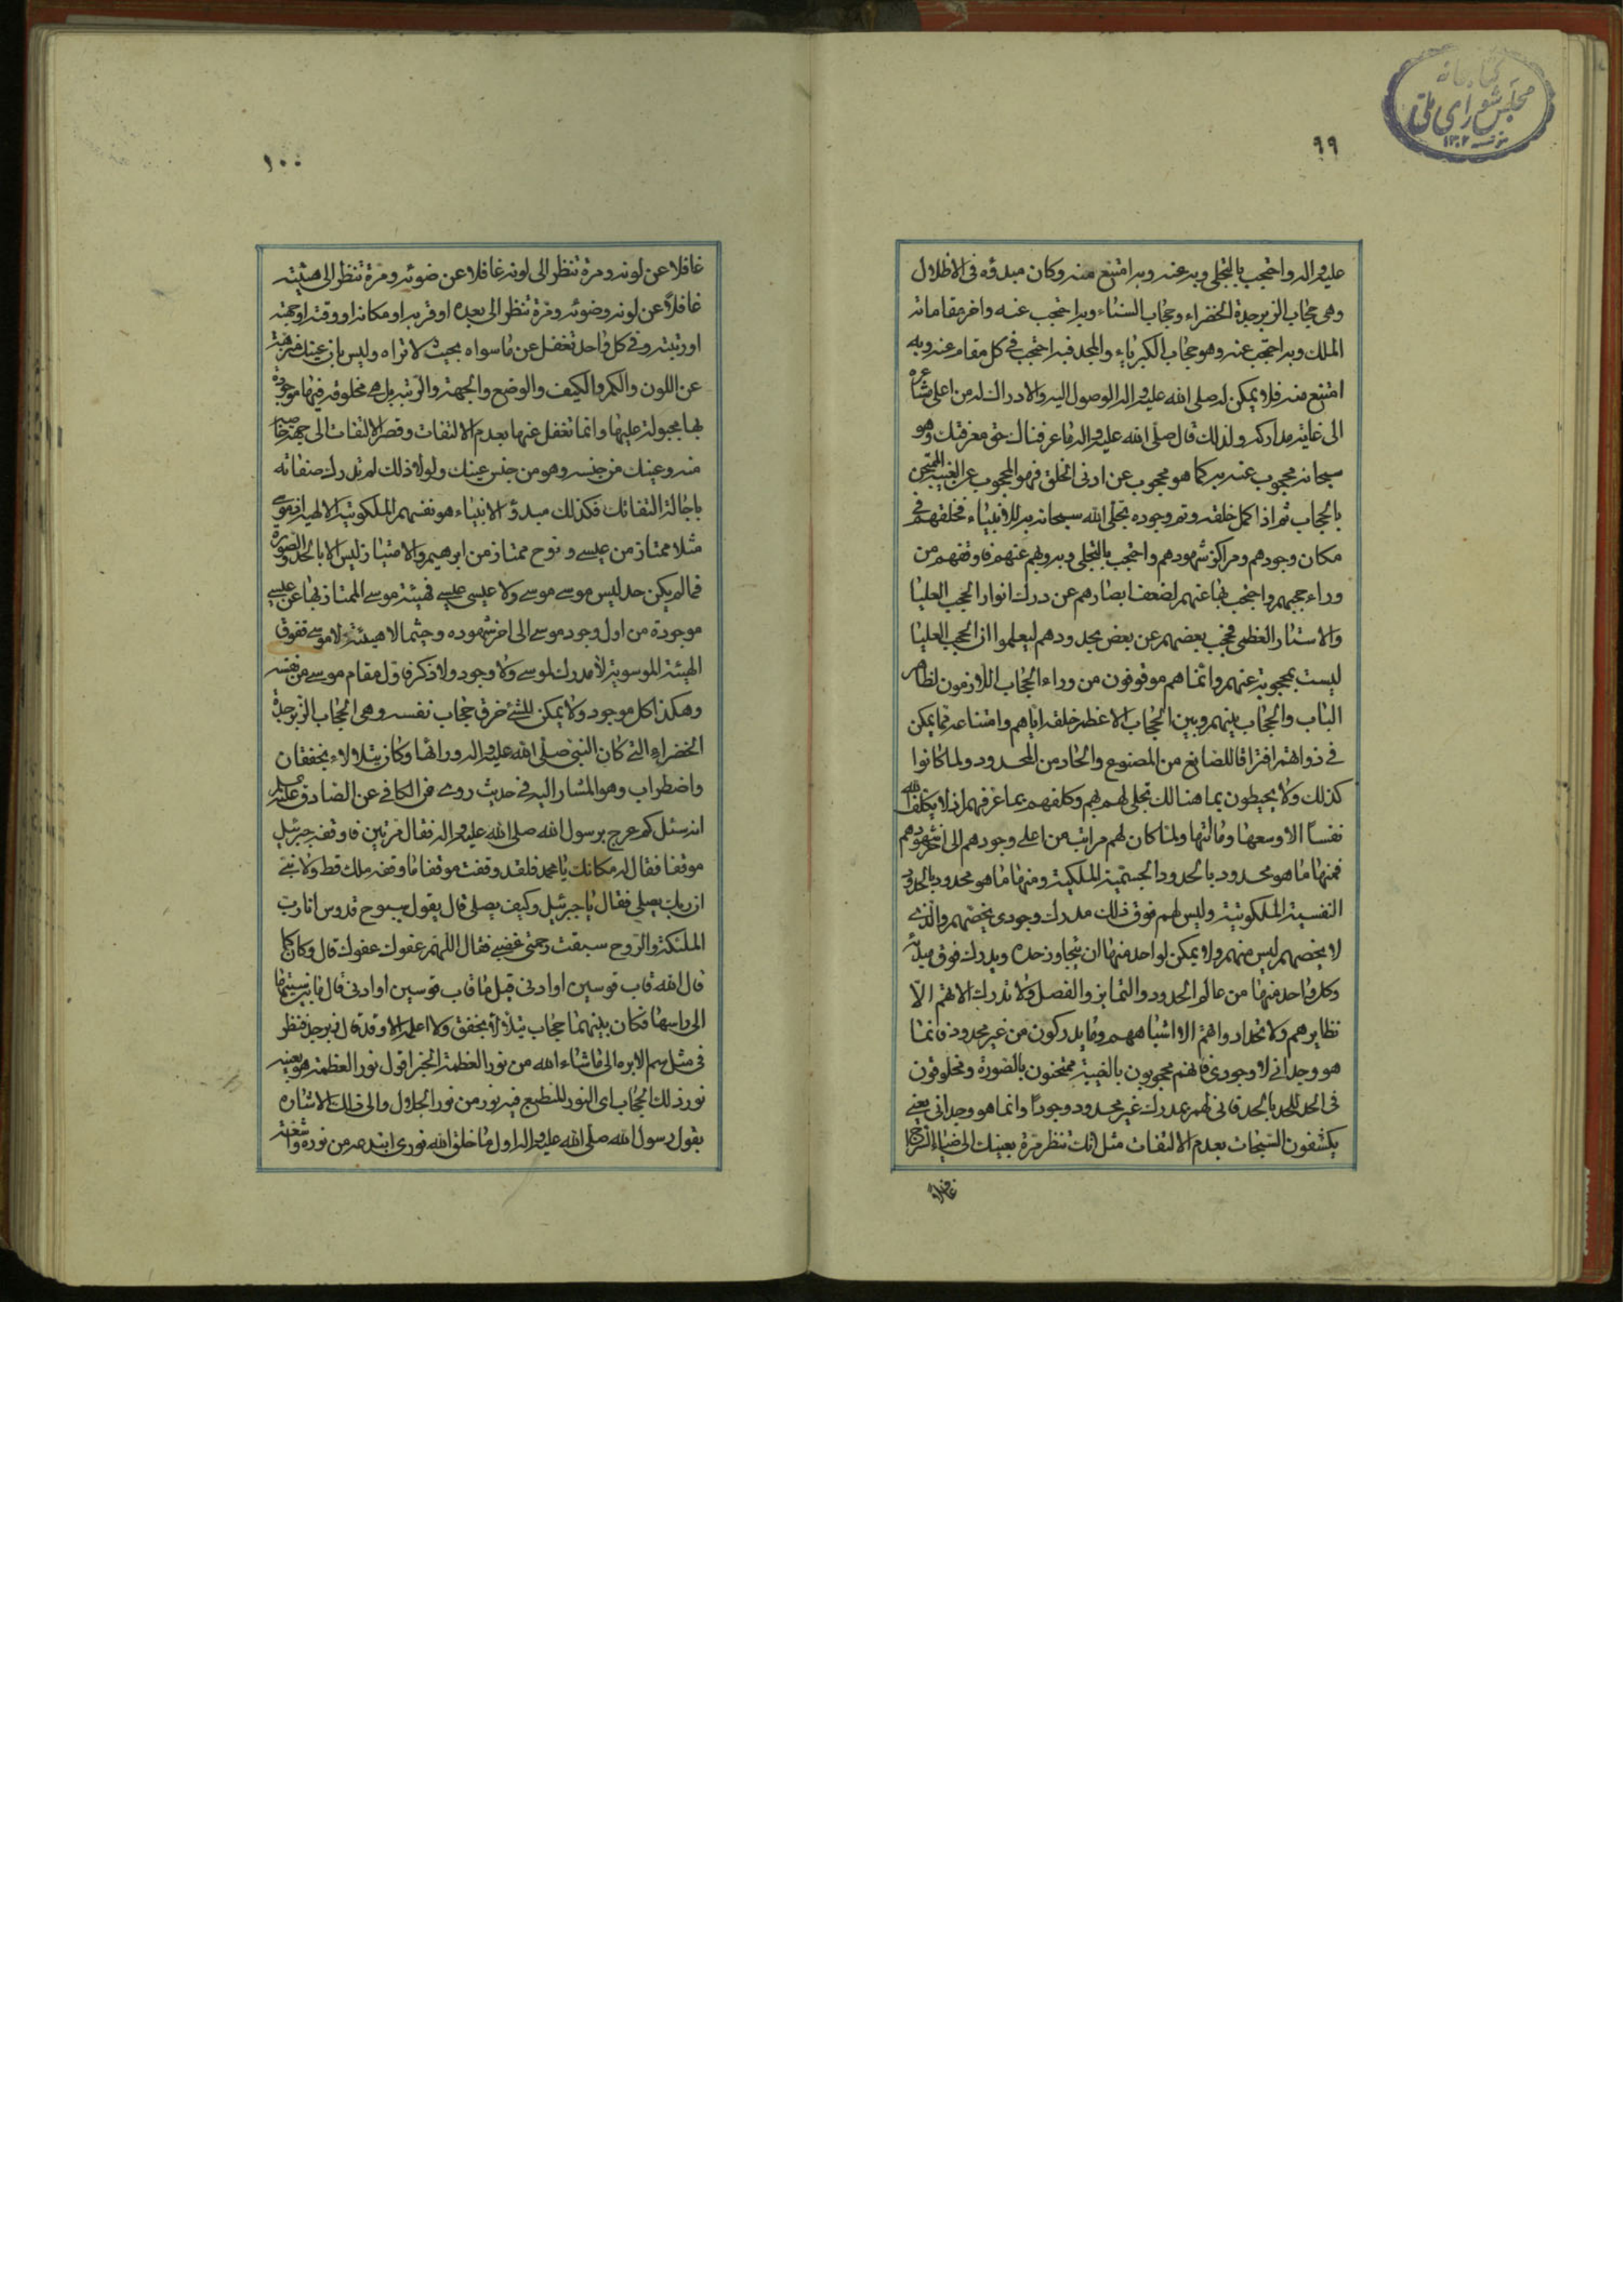 كتابخانه
مجلس شورای ملی
۱۳۰۲
٩٩
عليه واله واحتجب بالتجلي وبه عنه وبه امتنع منه وكان مبدؤه في الاظلال
وهي حجاب الزبرجدة الخضراء وحجاب السناء وبه احتجب عنه واخر مقاماته
الملك وبه احتجب عنه وهو حجاب الكبرياء والمجد فبه احتجب في كل مقام عنه وبه
امتنع منه فلا يمكن له صلى الله عليه واله الوصول اليه والادراك له من اعلى مشاعره
الى غاية مداركه ولذلك قال صلى الله عليه واله ما عرفناك حق معرفتك وهو
سبحانه محجوب عنه به كما هو محجوب عن ادنى الخلق فهو المحجوب عن الغيبة
بالحجاب ثم اذا كمل خلقه وتم وجوده تجلى الله سبحانه به للانبياء فخلقهم في
مكان وجودهم ومراكز شهودهم واحتجب بالتجلي وبه وبهم عنهم فاوقفهم من
وراء حجبهم واحتجب بها عنهم لضعف ابصارهم عن درك انوار الحجب العليا
والاستار العظمى فحجب بعضهم عن بعض بحدودهم ليعلموا ان الحجب العليا
ليست بمحجوبة عنهم وانما هم موقوفون من وراء الحجاب اللازمون لظاهر
الباب والحجاب بينهم وبين الحجاب الاعظم خلقه اياهم وامتناعه مما يمكن
في ذواتهم افتراقا للصانع من المصنوع والحاد من المحدود ولما كانوا
كذلك ولا يحيطون بما هنالك تجلى لهم بهم وكلفهم بما عرفهم اذ لا يكلف الله
نفسا الا وسعها وما اتيها ولما كان لهم مراتب من اعلى وجودهم الى اخر شهودهم
فمنها ما هو محدود بالحدود الجسمية الملكية ومنها ما هو محدود بالحدود
النفسية الملكوتية وليس لهم فوق ذلك مدرك وجودي يخصهم والذي
لا يخصهم ليس منهم ولا يمكن لواحد منها ان يتجاوز حده ويدرك فوق مبدئه
وكل واحد منها من عالم الحدود والتمايز والفصل ولا تدرك الالهتهم الا
نظايرهم ولا تحد ادواتهم الا اشباههم وما يدركون من غير محدود فانما
هو وجداني لا وجودي فانهم محجوبون بالغيبة ممتحنون بالصورة ومخلوقون
في الحد للحد بالحد فاني لهم بمدرك غير محدود وجودا وانما هو وجداني يعني
يكشفون السبحات بعدم الالتفات مثل انك تنظر مرة بعينك الى ضياء السراج
غافلا
١٠٠
غافلا عن لونه ومرة تنظر الى لونه غافلا عن ضوئه ومرة تنظر الى هيئته
غافلا عن لونه وضوئه ومرة تنظر الى بعده او قربه او مكانه او وقته او جهته
او رتبته وفي كل واحد تغفل عن ما سواه بحيث لا تراه وليس بان عينك منزهة
عن اللون والكم والكيف والوضع والجهة والرتبة بل هي مخلوقة فيها موجودة
بها مجبولة عليها وانما تغفل عنها بعدم الالتفات وقصر الالتفات الى جهة خاصة
منه وعينك من جنسه وهو من جنس عينك ولولا ذلك لم تدرك صفاته
باجالة التفاتك فكذلك مبدؤ الانبياء هو نفسهم الملكوتية الالهية فموسى
مثلا ممتاز من عيسى ونوح ممتاز من ابرهيم والامتياز ليس الا بالحد والصورة
فما لم يكن حد ليس موسى موسى ولا عيسى عيسى فهيئة موسى الممتاز بها عن عيسى
موجودة من اول وجود موسى الى اخر شهوده وحيثما لا هيئة لا موسى ففوق
الهيئة الموسوية لا مدرك لموسى ولا وجود ولا ذكر فاول مقام موسى من نفسه
وهكذا كل موجود ولا يمكن للشئ خرق حجاب نفسه وهي الحجاب الزبرجدة
الخضراء التي كان النبي صلى الله عليه واله ورائها وكان يتلالاء بخفقان
واضطراب وهو المشار اليه في حديث روي في الكافي عن الصادق عليه السلم
انه سئل كم عرج برسول الله صلى الله عليه واله فقال مرتين فاوقفه جبرئيل
موقفا فقال له مكانك يا محمد فلقد وقفت موقفا ما وقفه ملك قط ولا نبي
ان ربك يصلي فقال يا جبرئيل وكيف يصلي قال يقول سبوح قدوس انا رب
الملئكة والروح سبقت رحمتي غضبي فقال اللهم عفوك عفوك قال وكان كما
قال الله قاب قوسين او ادنى قيل ما قاب قوسين او ادنى قال ما بين سيتها
الى راسها فكان بينهما حجاب يتلالأ بخفق ولا اعلمه الا وقد قال زبرجد فنظر
في مثل سم الابرة الى ما شاء الله من نور العظمة الخبر اقول نور العظمة هو بعينه
نور ذلك الحجاب اي النور المنطبع فيه نور من نور الجلال والى ذلك الاشارة
بقول رسول الله صلى الله عليه واله اول ما خلق الله نوري ابتدعه من نوره واشتقه